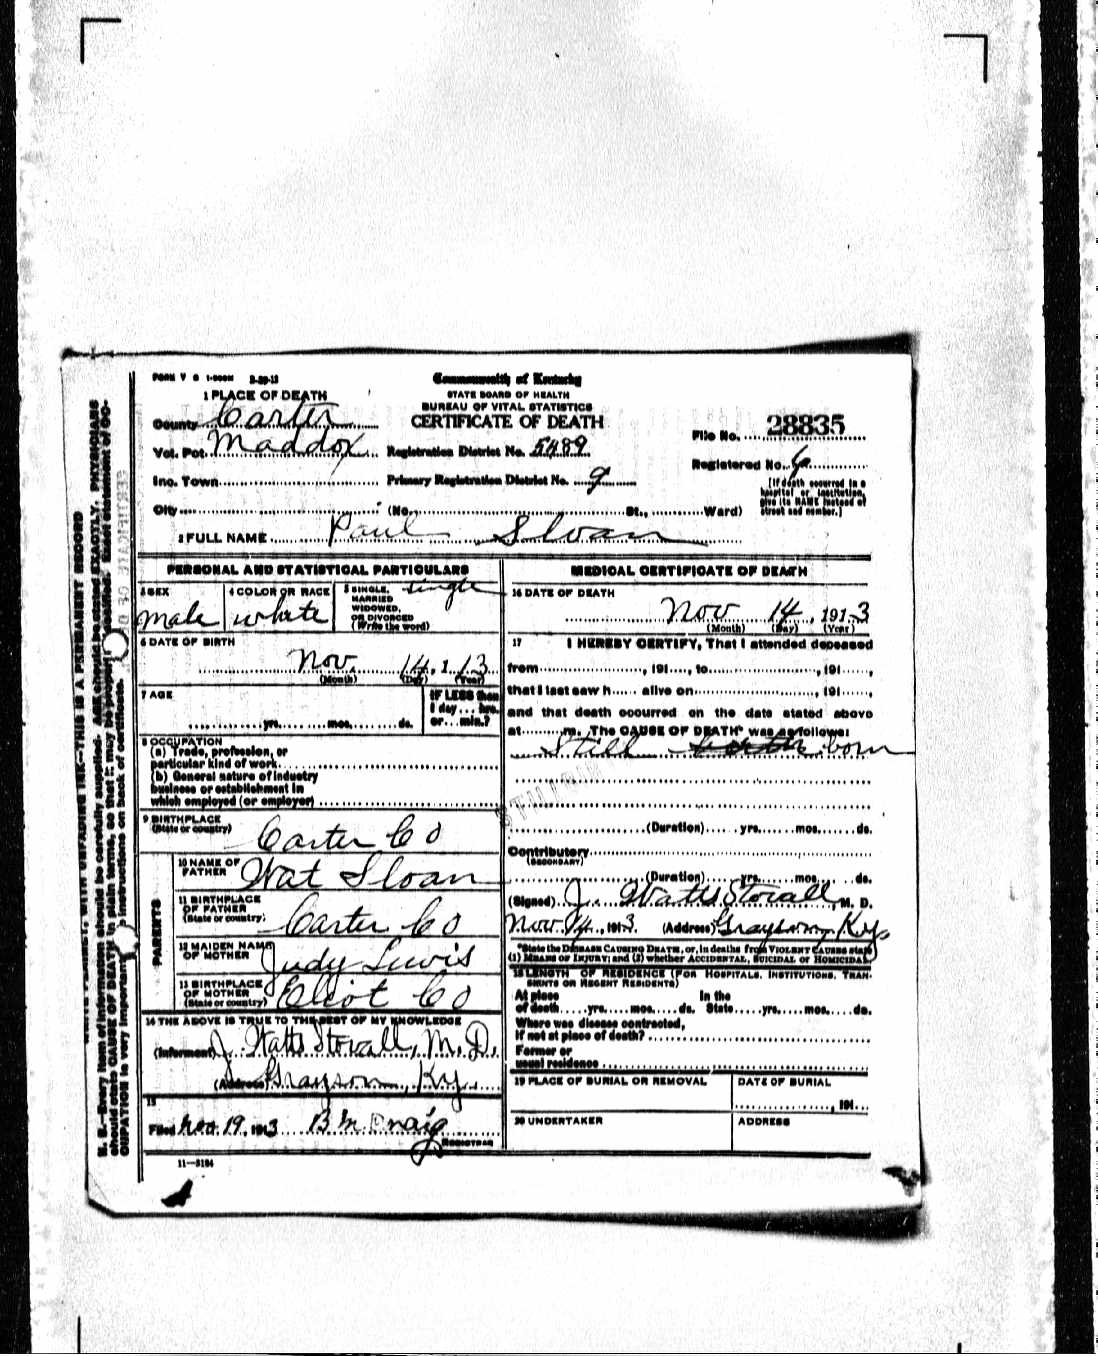 FORM V S 1-500M 3-29-13
Commonwealth of Kentucky
STATE BOARD OF HEALTH
BUREAU OF VITAL STATISTICS
CERTIFICATE OF DEATH
1 PLACE OF DEATH
County Carter
Vot. Pct. Maddox
Registration District No. 5489
File No. 28835
Inc. Town
Primary Registration District No. 9
Registered No. 6
City
(No. St., Ward)
[If death occurred in a
hospital or institution,
give its NAME instead of
street and number.]
2 FULL NAME Paul Sloan
PERSONAL AND STATISTICAL PARTICULARS
3 SEX
male
4 COLOR OR RACE
white
5 SINGLE,
MARRIED
WIDOWED,
OR DIVORCED
(Write the word)
single
6 DATE OF BIRTH
Nov. 14, 1 13
(Month) (Day) (Year)
7 AGE
yrs. mos. ds.
IF LESS than
1 day ... hrs.
or ... min.?
8 OCCUPATION
(a) Trade, profession, or
particular kind of work
(b) General nature of industry
business or establishment in
which employed (or employer)
9 BIRTHPLACE
(State or country)
Carter Co
PARENTS
10 NAME OF
FATHER
Wat Sloan
11 BIRTHPLACE
OF FATHER
(State or country)
Carter Co
12 MAIDEN NAME
OF MOTHER
Judy Lewis
13 BIRTHPLACE
OF MOTHER
(State or country)
Eliot Co
14 THE ABOVE IS TRUE TO THE BEST OF MY KNOWLEDGE
(Informant) J. Watts Stovall, M.D.
(Address) Grayson, Ky.
15
Filed Nov 19, 1913 B M Craig
REGISTRAR
11-3184
MEDICAL CERTIFICATE OF DEATH
16 DATE OF DEATH
Nov 14, 1913
(Month) (Day) (Year)
17 I HEREBY CERTIFY, That I attended deceased
from , 191 , to , 191 ,
that I last saw h alive on , 191 ,
and that death occurred on the date stated above
at m. The CAUSE OF DEATH* was as follows:
Still born
(Duration) yrs. mos. ds.
Contributory
(SECONDARY)
(Duration) yrs. mos. ds.
(Signed) J. Watts Stovall, M. D.
Nov. 14, 1913. (Address) Grayson, Ky.
*State the DISEASE CAUSING DEATH, or, in deaths from VIOLENT CAUSES state
(1) MEANS OF INJURY; and (2) whether ACCIDENTAL, SUICIDAL or HOMICIDAL.
18 LENGTH OF RESIDENCE (FOR HOSPITALS, INSTITUTIONS, TRAN-
SIENTS OR RECENT RESIDENTS)
At place
of death yrs. mos. ds.
In the
State yrs. mos. ds.
Where was disease contracted,
if not at place of death?
Former or
usual residence
19 PLACE OF BURIAL OR REMOVAL
DATE OF BURIAL
, 191
20 UNDERTAKER
ADDRESS